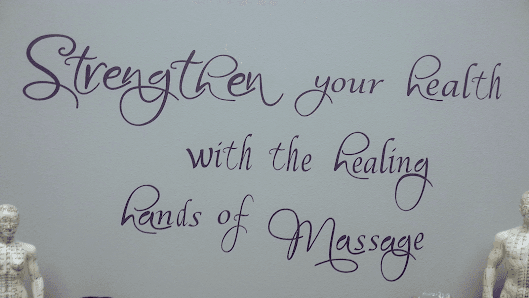 Strengthen your health
with the healing
hands of Massage